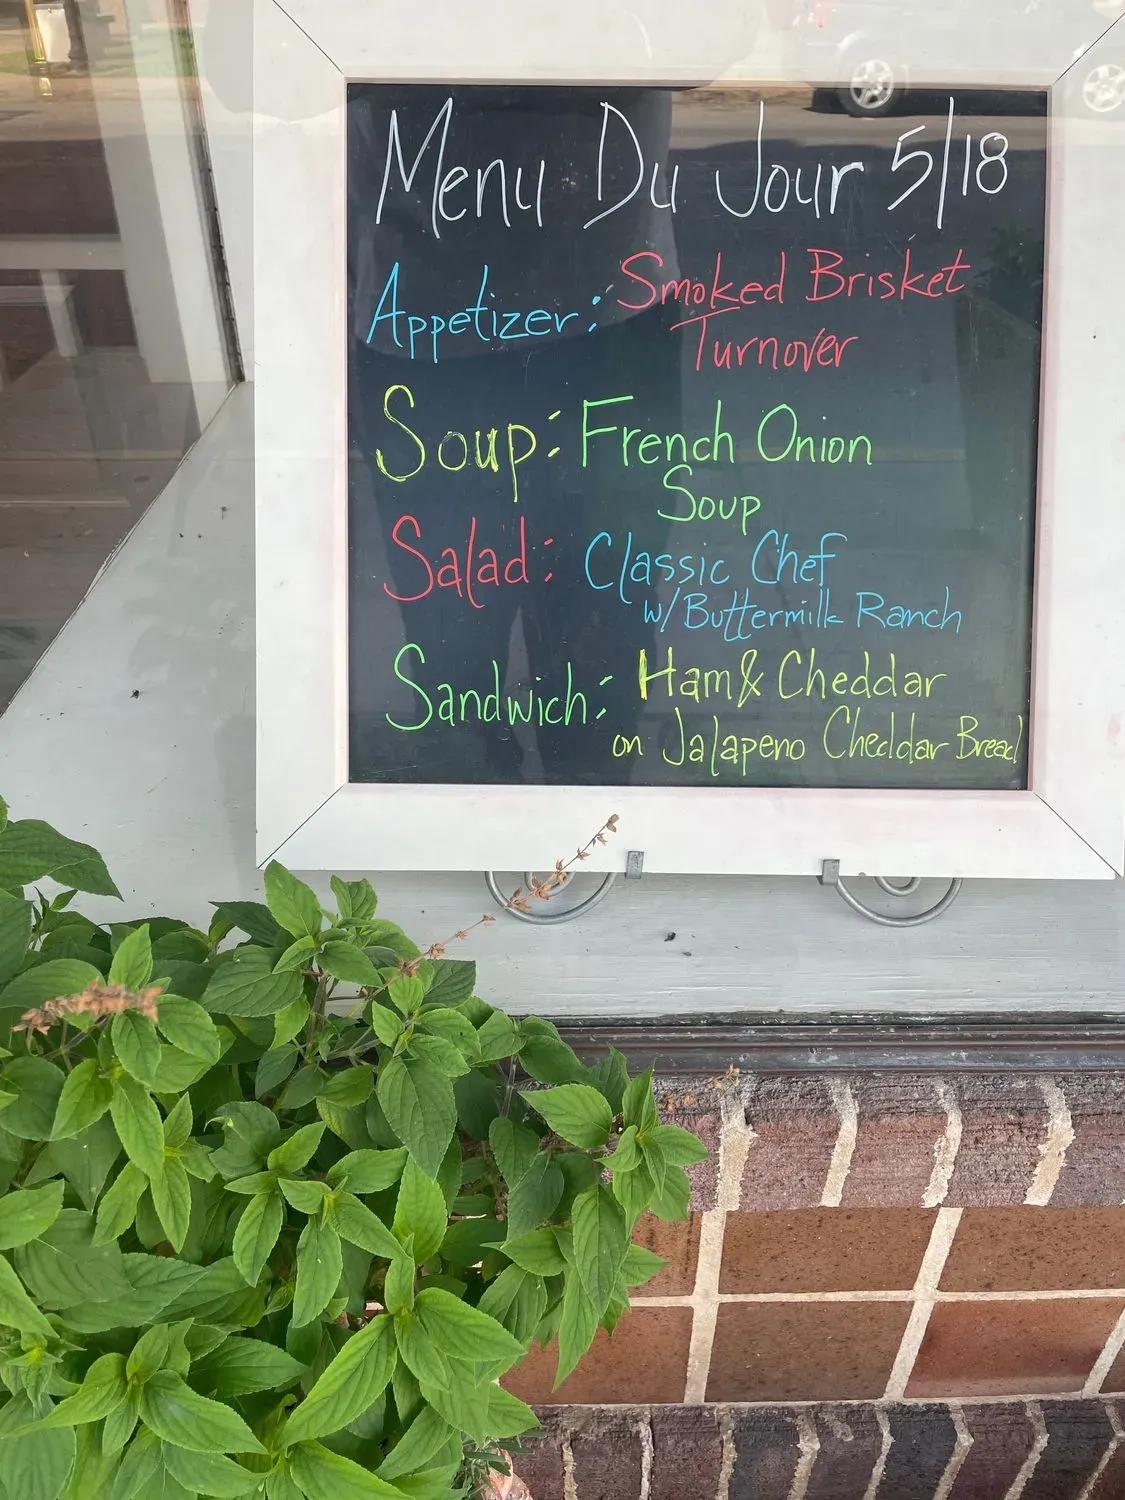 Menu Du Jour 5/18
Appetizer: Smoked Brisket
Turnover
Soup: French Onion
Soup
Salad: Classic Chef
w/Buttermilk Ranch
Sandwich: Ham & Cheddar
on Jalapeno Cheddar Bread